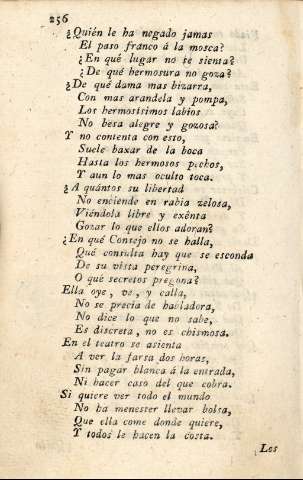 256
¿Quién le ha negado jamas
El paso franco á la mosca?
¿En qué lugar no se sienta?
¿De qué hermosura no goza?
¿De qué dama mas bizarra,
Con mas arandela y pompa,
Los hermosísimos labios
No besa alegre y gozosa?
Y no contenta con esto,
Suele baxar de la boca
Hasta los hermosos pechos,
Y aun lo mas oculto toca.
¿A quántos su libertad
No enciende en rabia zelosa,
Viéndola libre y exênta
Gozar lo que ellos adoran?
¿En qué Consejo no se halla,
Qué consulta hay que se esconda
De su vista peregrina,
O qué secretos pregona?
Ella oye, ve, y calla,
No se precia de habladora,
No dice lo que no sabe,
Es discreta, no es chismosa.
En el teatro se asienta
A ver la farsa dos horas,
Sin pagar blanca á la entrada,
Ni hacer caso del que cobra.
Si quiere ver todo el mundo
No ha menester llevar bolsa,
Que ella come donde quiere,
Y todos le hacen la costa.
¿Los